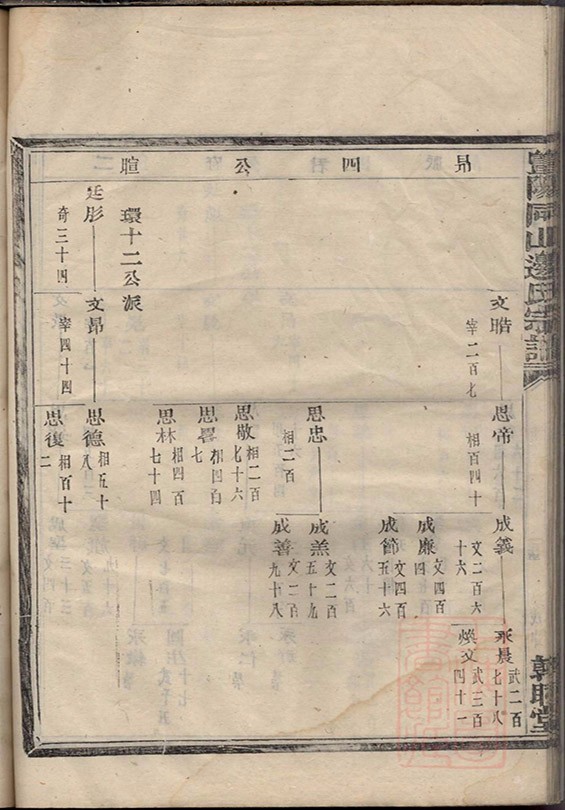 暨陽同山邊氏宗譜
敦睦堂
昂四公暄
文晧
宰二百七
思帝
相百四十
成義
文二百六
十六
永晨
武二百
七十八
煥文
武三百
四十一
成廉
文四百
四
成節
文四百
五十六
思忠
相二百
成羔
文一二百
五十九
成善
文二百
九十八
思敬
相二百
七十六
思畧
相四百
七
思林
相四百
七十四
環十二公派
廷彤
奇三十四
文昂
宰四十四
思德
相五十
八
思復
相百十
二